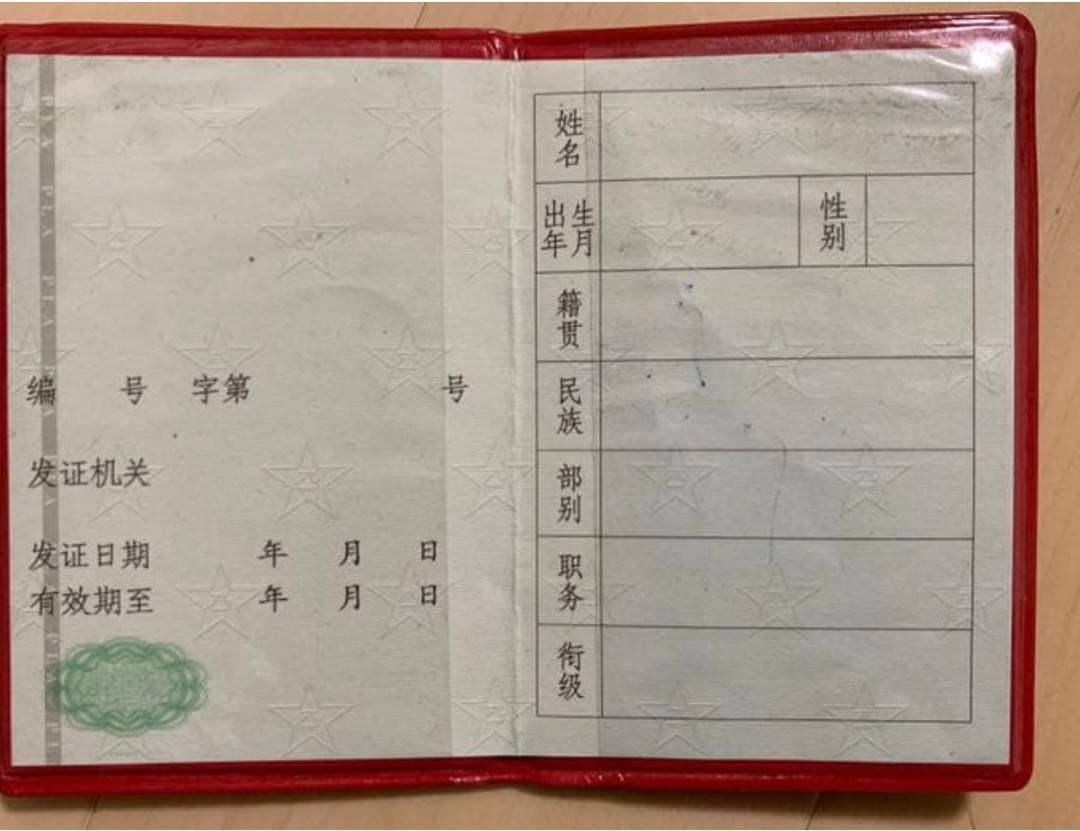 PLA PLA PLA PLA
编 号 字第 号
发证机关
发证日期 年 月 日
有效期至 年 月 日
PLA PLA
姓名
出生年月 性别
籍贯
民族
部别
职务
衔级